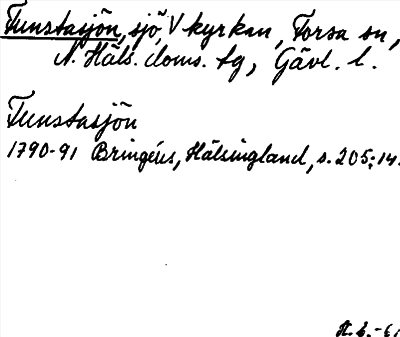 Tunstasjön, sjö, V kyrkan, Torsa sn,
N. Häls. doms. tg, Gävl. l.
Tunstasjön
1790-91 Bringéus, Hälsingland, s. 205:14.